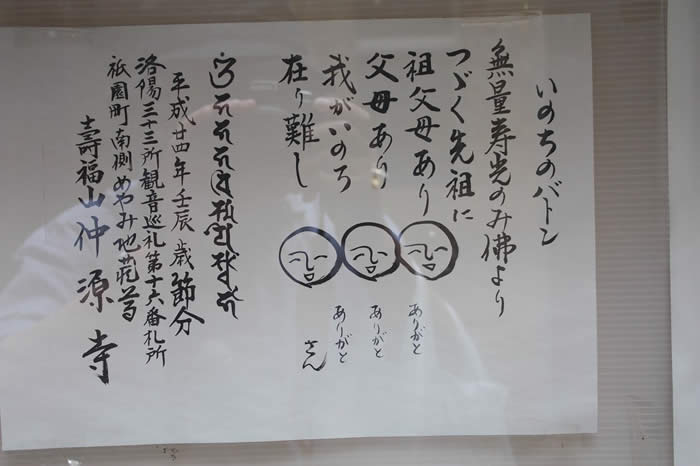 いのちのバトン
無量寿光のみ佛より
つゞく先祖に
祖父母あり
父母あり
我がいのち
在り難し
ありがと
ありがと
ありがと
さん
平成廿四年壬辰歳節分
洛陽三十三所観音巡礼第十六番札所
祇園町南側めやみ地蔵尊
壽福山仲源寺